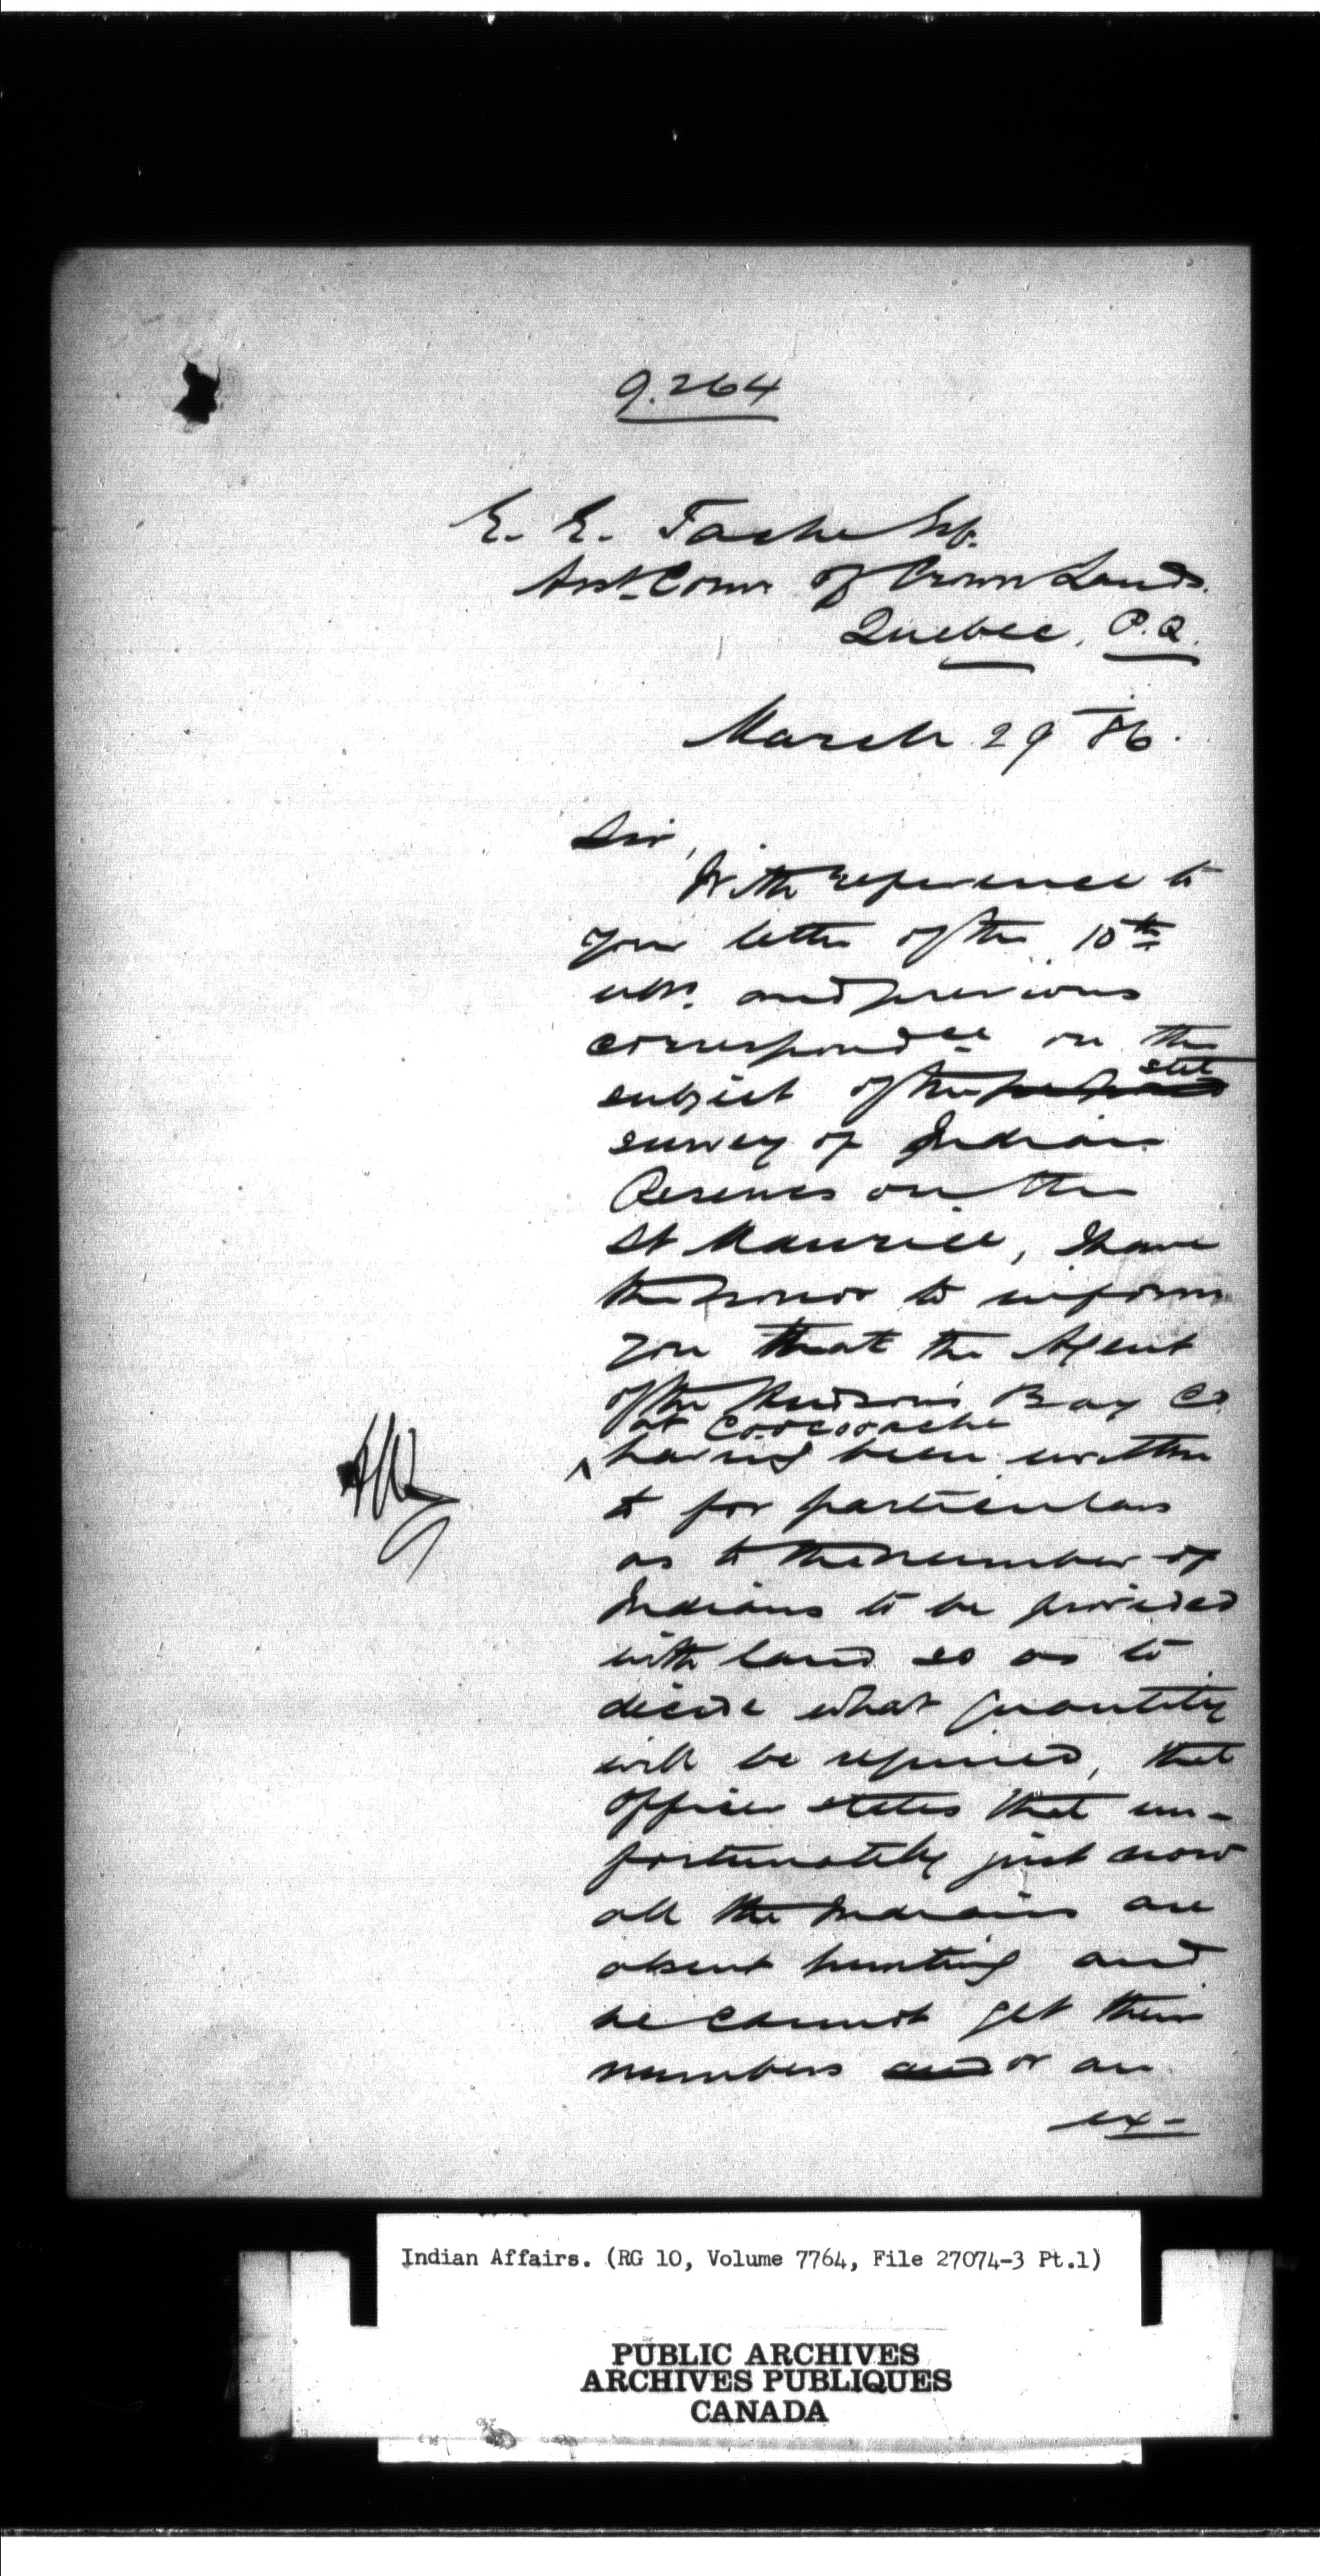 9.264
E. E. Tache Esq.
Asst Comr of Crown Lands.
Quebec, P.Q.
March 29 86.
Sir,
With reference to
your letter of the 10th
ulto. and previous
correspondce on the
subject of the
survey of Indian
Reserves on the
St Maurice, I have
the honor to inform
you that the Agent
of the Hudson's Bay Co.
at Coocoocache
having been written
to for particulars
as to the number of
Indians to be provided
with land so as to
decide what quantity
will be required, that
officer states that un-
fortunately just now
all the Indians are
absent hunting and
he cannot get their
numbers and or an
ex-
Indian Affairs. (RG 10, Volume 7764, File 27074-3 Pt.1)
PUBLIC ARCHIVES
ARCHIVES PUBLIQUES
CANADA